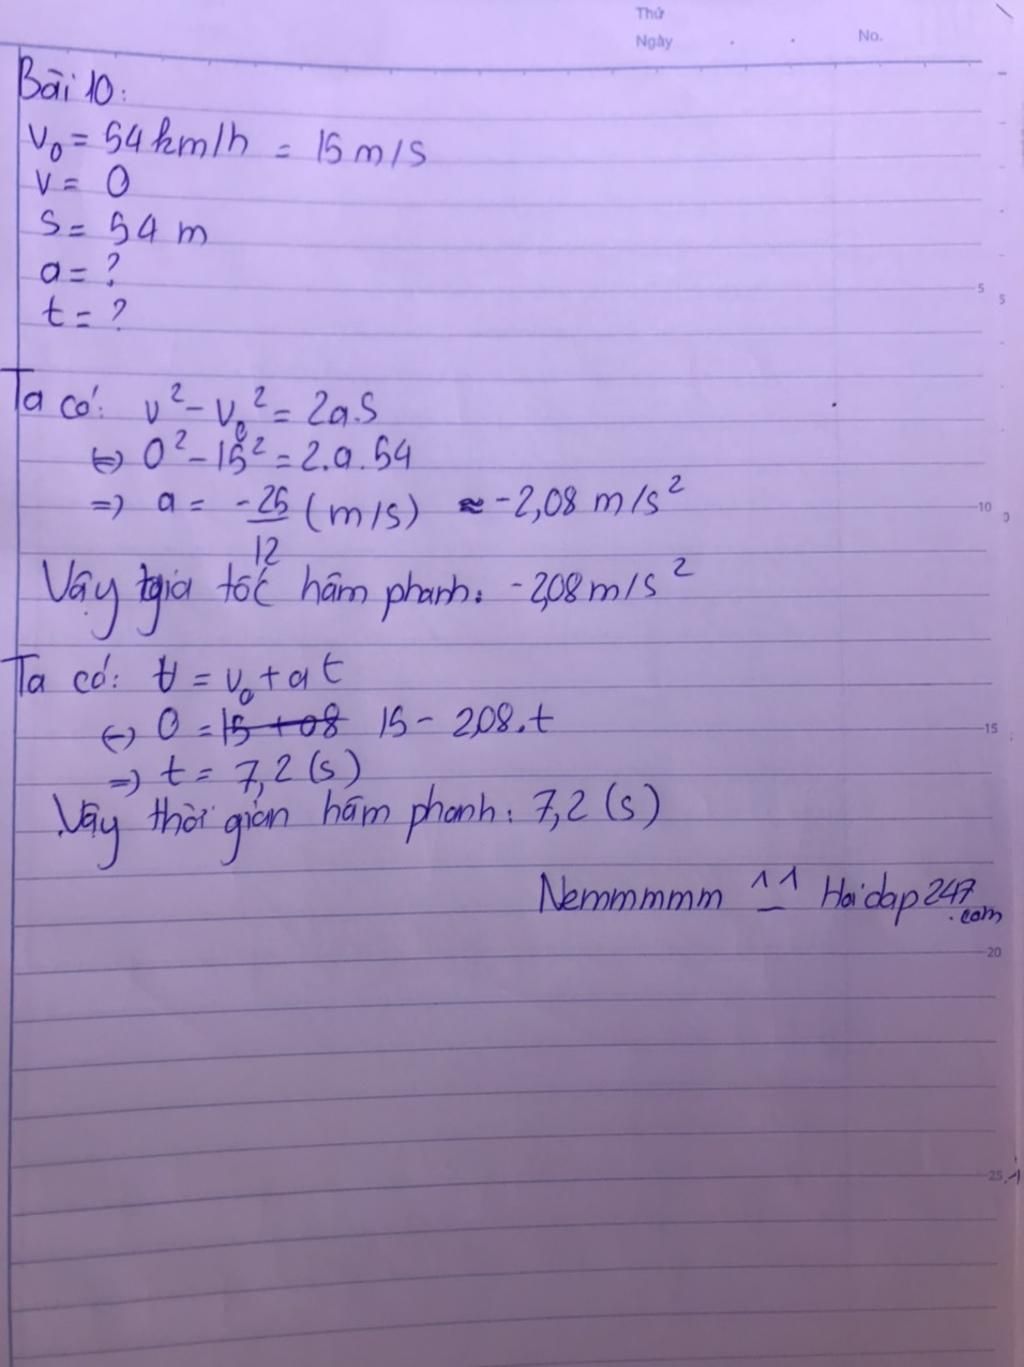 Thứ
Ngày . . No.
Bài 10:
v₀ = 54 km/h = 15 m/s
v = 0
S = 54 m
a = ?
t = ?
5 5
Ta có: v² - v₀² = 2a.S
⇔ 0² - 15² = 2.a.54
⇒ a = -25/12 (m/s) ≈ -2,08 m/s²
10
Vậy gia tốc hãm phanh: -2,08 m/s²
Ta có: v = v₀ + at
⇔ 0 = 15 + 08 15 - 2,08.t
15
⇒ t = 7,2 (s)
Vậy thời gian hãm phanh: 7,2 (s)
Nemmmmm ^_^ Hoidap247
.com
20
25